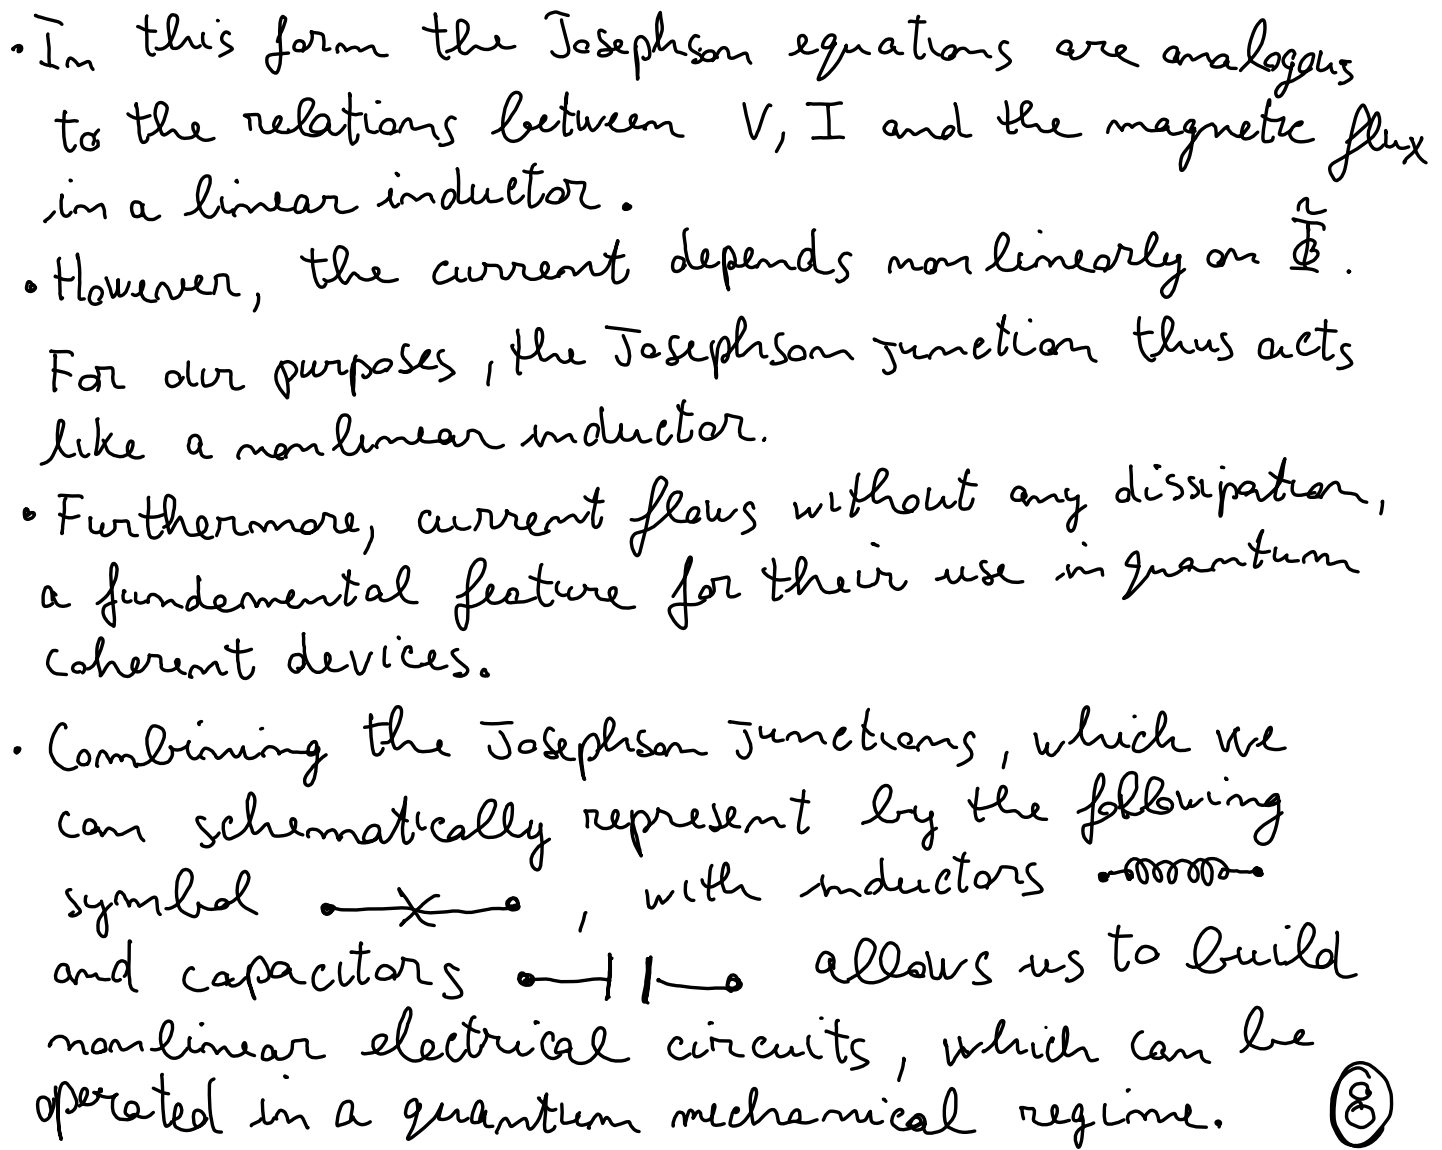 • In this form the Josephson equations are analogous
to the relations between V, I and the magnetic flux
in a linear inductor.
• However, the current depends nonlinearly on Φ̃.
For our purposes, the Josephson junction thus acts
like a nonlinear inductor.
• Furthermore, current flows without any dissipation,
a fundamental feature for their use in quantum
coherent devices.
• Combining the Josephson junctions, which we
can schematically represent by the following
symbol , with inductors
and capacitors allows us to build
nonlinear electrical circuits, which can be
operated in a quantum mechanical regime.
8